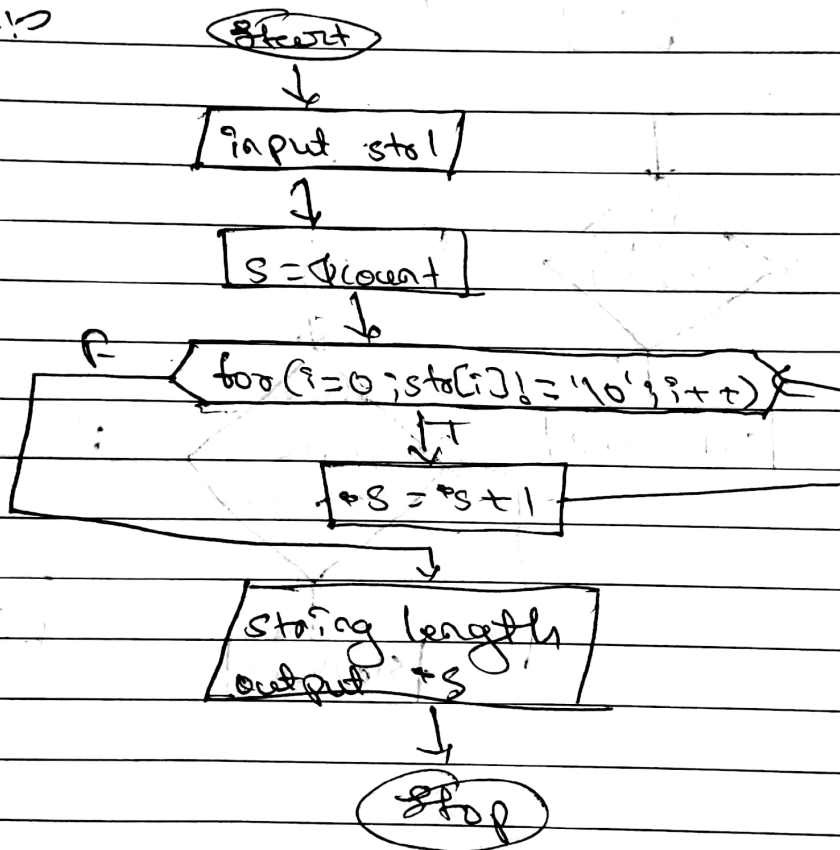 Start
input str1
s = &count
F
for (i=0 ; str[i] != '\0' ; i++)
T
*s = *s + 1
string length
output *s
Stop